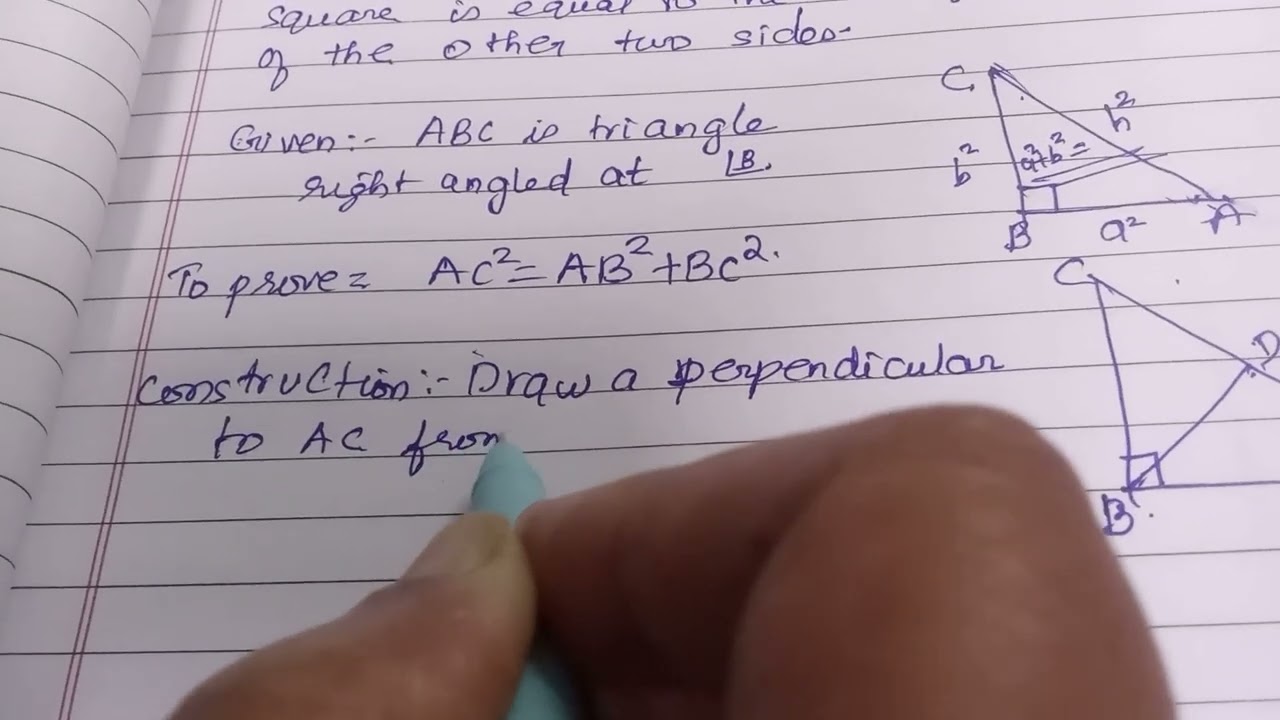 square is equal to
of the other two sides-
Given:- ABC is triangle
right angled at ∟B.
To prove= AC²=AB²+BC².
Construction:- Draw a perpendicular
to AC from
C
h²
a²+b²=
b²
B
a²
A
C
D
B